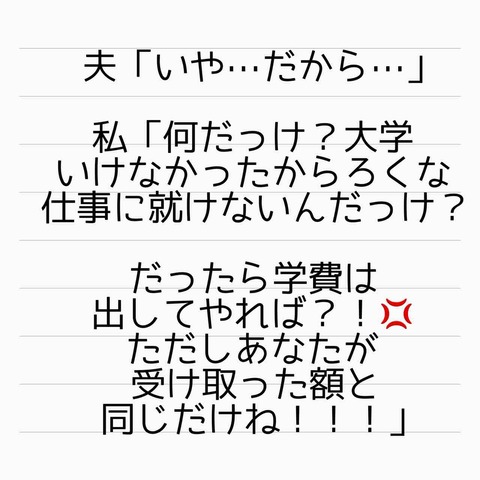 夫「いや…だから…」
私「何だっけ？大学
いけなかったからろくな
仕事に就けないんだっけ？
だったら学費は
出してやれば？！💢
ただしあなたが
受け取った額と
同じだけね！！！」